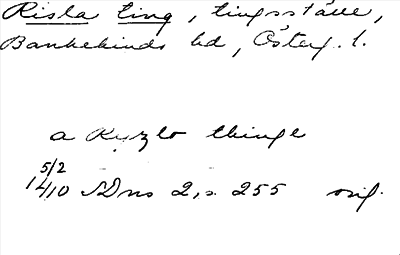 Risla ting, tingsställe,
Bankekinds hd, Österg. l.
a Ryzlo thinge
5/2
1410 SDns 2, s. 255 orig.